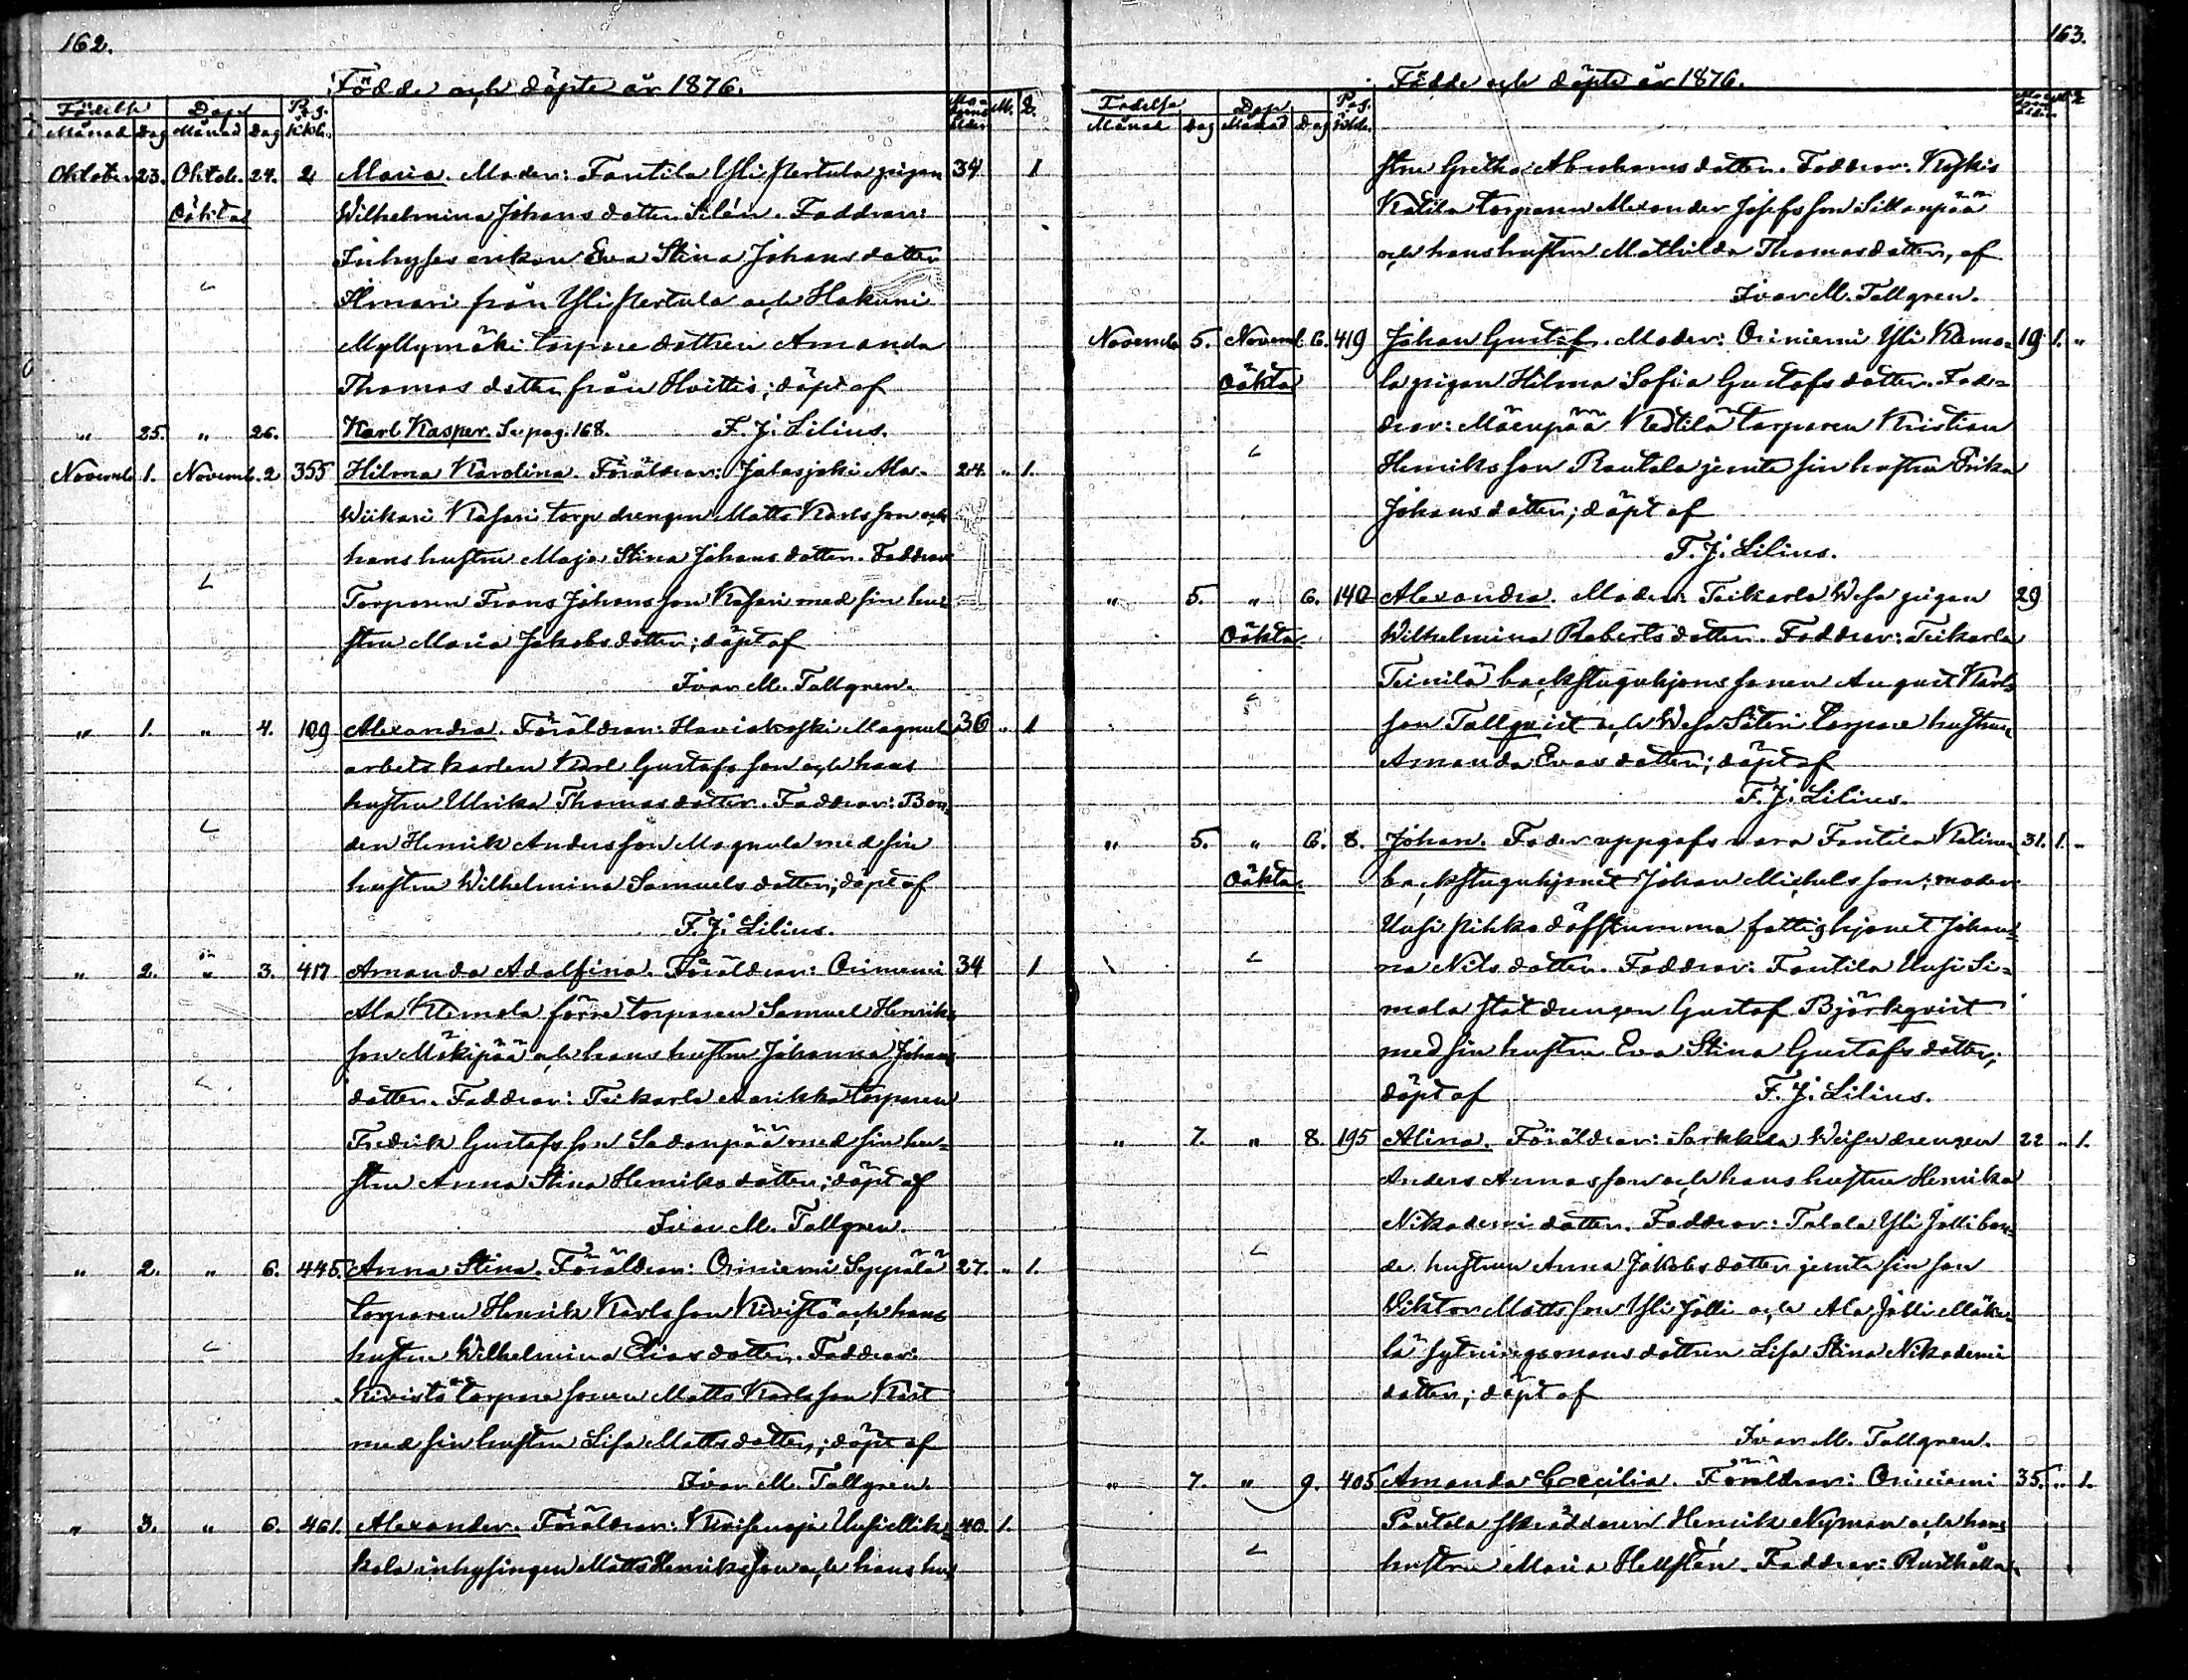 162.
Födde och döpte år 1876.
Födelse Döpe Pag. Mo- M. Q.
Månad Dag Månad Dag
Oktober 23. Oktob. 24. 2 Maria. Moder: Fantila Yli pigan 34 1
Oäkta Wilhelmina Johansdotter Silén. Faddrar:
Inhyses enkan Eva Stina Johansdotter
Ilmari från Yli och Hakuni
Myllymäki torparedottren Amanda
Thomasdotter från Hvittis; döpt af
" 25. " 26. Karl Kasper. Se pag. 168. F. J. Lilius.
Novemb. 1. Novemb. 2 355 Hilma Karolina. Föräldrar: Jalasjoki Ala- 24. " 1.
Wiikari torp drengen Matts Karlsson och
hans hustru Maja Stina Johansdotter. Faddrar
Torparen Frans Johansson med sin hu-
stru Maria Jakobsdotter; döpt af
Ivar M. Tallgren.
" 1. " 4. 109 Alexandra. Föräldrar: Magnula 36 " 1
arbetskarlen Karl Gustafsson och hans
hustru Ulrika Thomasdotter. Faddrar: Bon-
den Henrik Andersson Magnula med sin
hustru Wilhelmina Samuelsdotter; döpt af
F. J. Lilius.
" 2. " 3. 417 Amanda Adolfina. Föräldrar: Oriniemi 34 1
Ala Klemola förre torparen Samuel Henriks-
son Mäkipää och hans hustru Johanna Johans-
dotter. Faddrar: Teikarla torparen
Fredrik Gustafsson Sadanpää med sin hu-
stru Anna Stina Henriksdotter; döpt af
Ivar M. Tallgren.
" 2. " 6. 445. Anna Stina. Föräldrar: Oriniemi Seppälä 27. " 1.
torparen Henrik Karlsson Kivistö och hans
hustru Wilhelmina Eliasdotter. Faddrar:
Kivistö torparesonen Matts Karlsson
med sin hustru Lisa Mattsdotter; döpt af
Ivar M. Tallgren.
" 3. " 6. 461. Alexander. Föräldrar: Uusi Mik- 40. 1.
kola inhysingen Matts Henriksson och hans hu-
163.
Födde och döpte år 1876.
Födelse Döpe Pag.
Månad Dag Månad Dag
stru Gretha Abrahamsdotter. Faddrar:
torparen Alexander Josefsson Sillanpää
och hans hustru Mathilda Thomasdotter, af
Ivar M. Tallgren.
Novemb. 5. Novemb. 6. 419 Johan Gustaf. Moder: Oriniemi Yli Klemo- 19 1. "
Oäkta la pigan Hilma Sofia Gustafsdotter. Fad-
drar: Mäenpää torparen Kristian
Henriksson Rautala jemte sin hustru Erika
Johansdotter; döpt af
F. J. Lilius.
" 5. " 6. 140 Alexandra. Moder: Teikarla Wesa pigan 29
Oäkta Wilhelmina Robertsdotter. Faddrar: Teikarla
Teinilä backstuguhjonssonen August Karls-
son Tallqvist och Wesa Säteri torpare hustrun
Amanda Evasdotter; döpt af
F. J. Lilius.
" 5. " 6. 8. Johan. Fader uppgafs vara Fantila 31. 1. "
Oäkta backstuguhjonet Johan Michelsson; moder
döfstumma fattighjonet Johan-
na Nilsdotter. Faddrar: Fantila Uusi Si-
mola statdrengen Gustaf Björkqvist
med sin hustru Eva Stina Gustafsdotter;
döpt af F. J. Lilius.
" 7. " 8. 195 Alina. Föräldrar: Sarkkila drengen 22 " 1.
Anders Annasson och hans hustru Henrika
Nikodemidotter. Faddrar: Talala Yli Jälli bon-
de hustrun Anna Jakobsdotter jemte sin son
Wiktor Mattsson Yli Jälli och Ala Jälli Mäke-
lä sytningsmansdottren Lisa Stina Nikodemi
dotter; döpt af
Ivar M. Tallgren.
" 7. " 9. 405 Amanda Cecilia. Föräldrar: Oriniemi 35. " 1.
skräddaren Henrik Nyman och hans
hustru Maria Hellstén. Faddrar: Rusthålla-